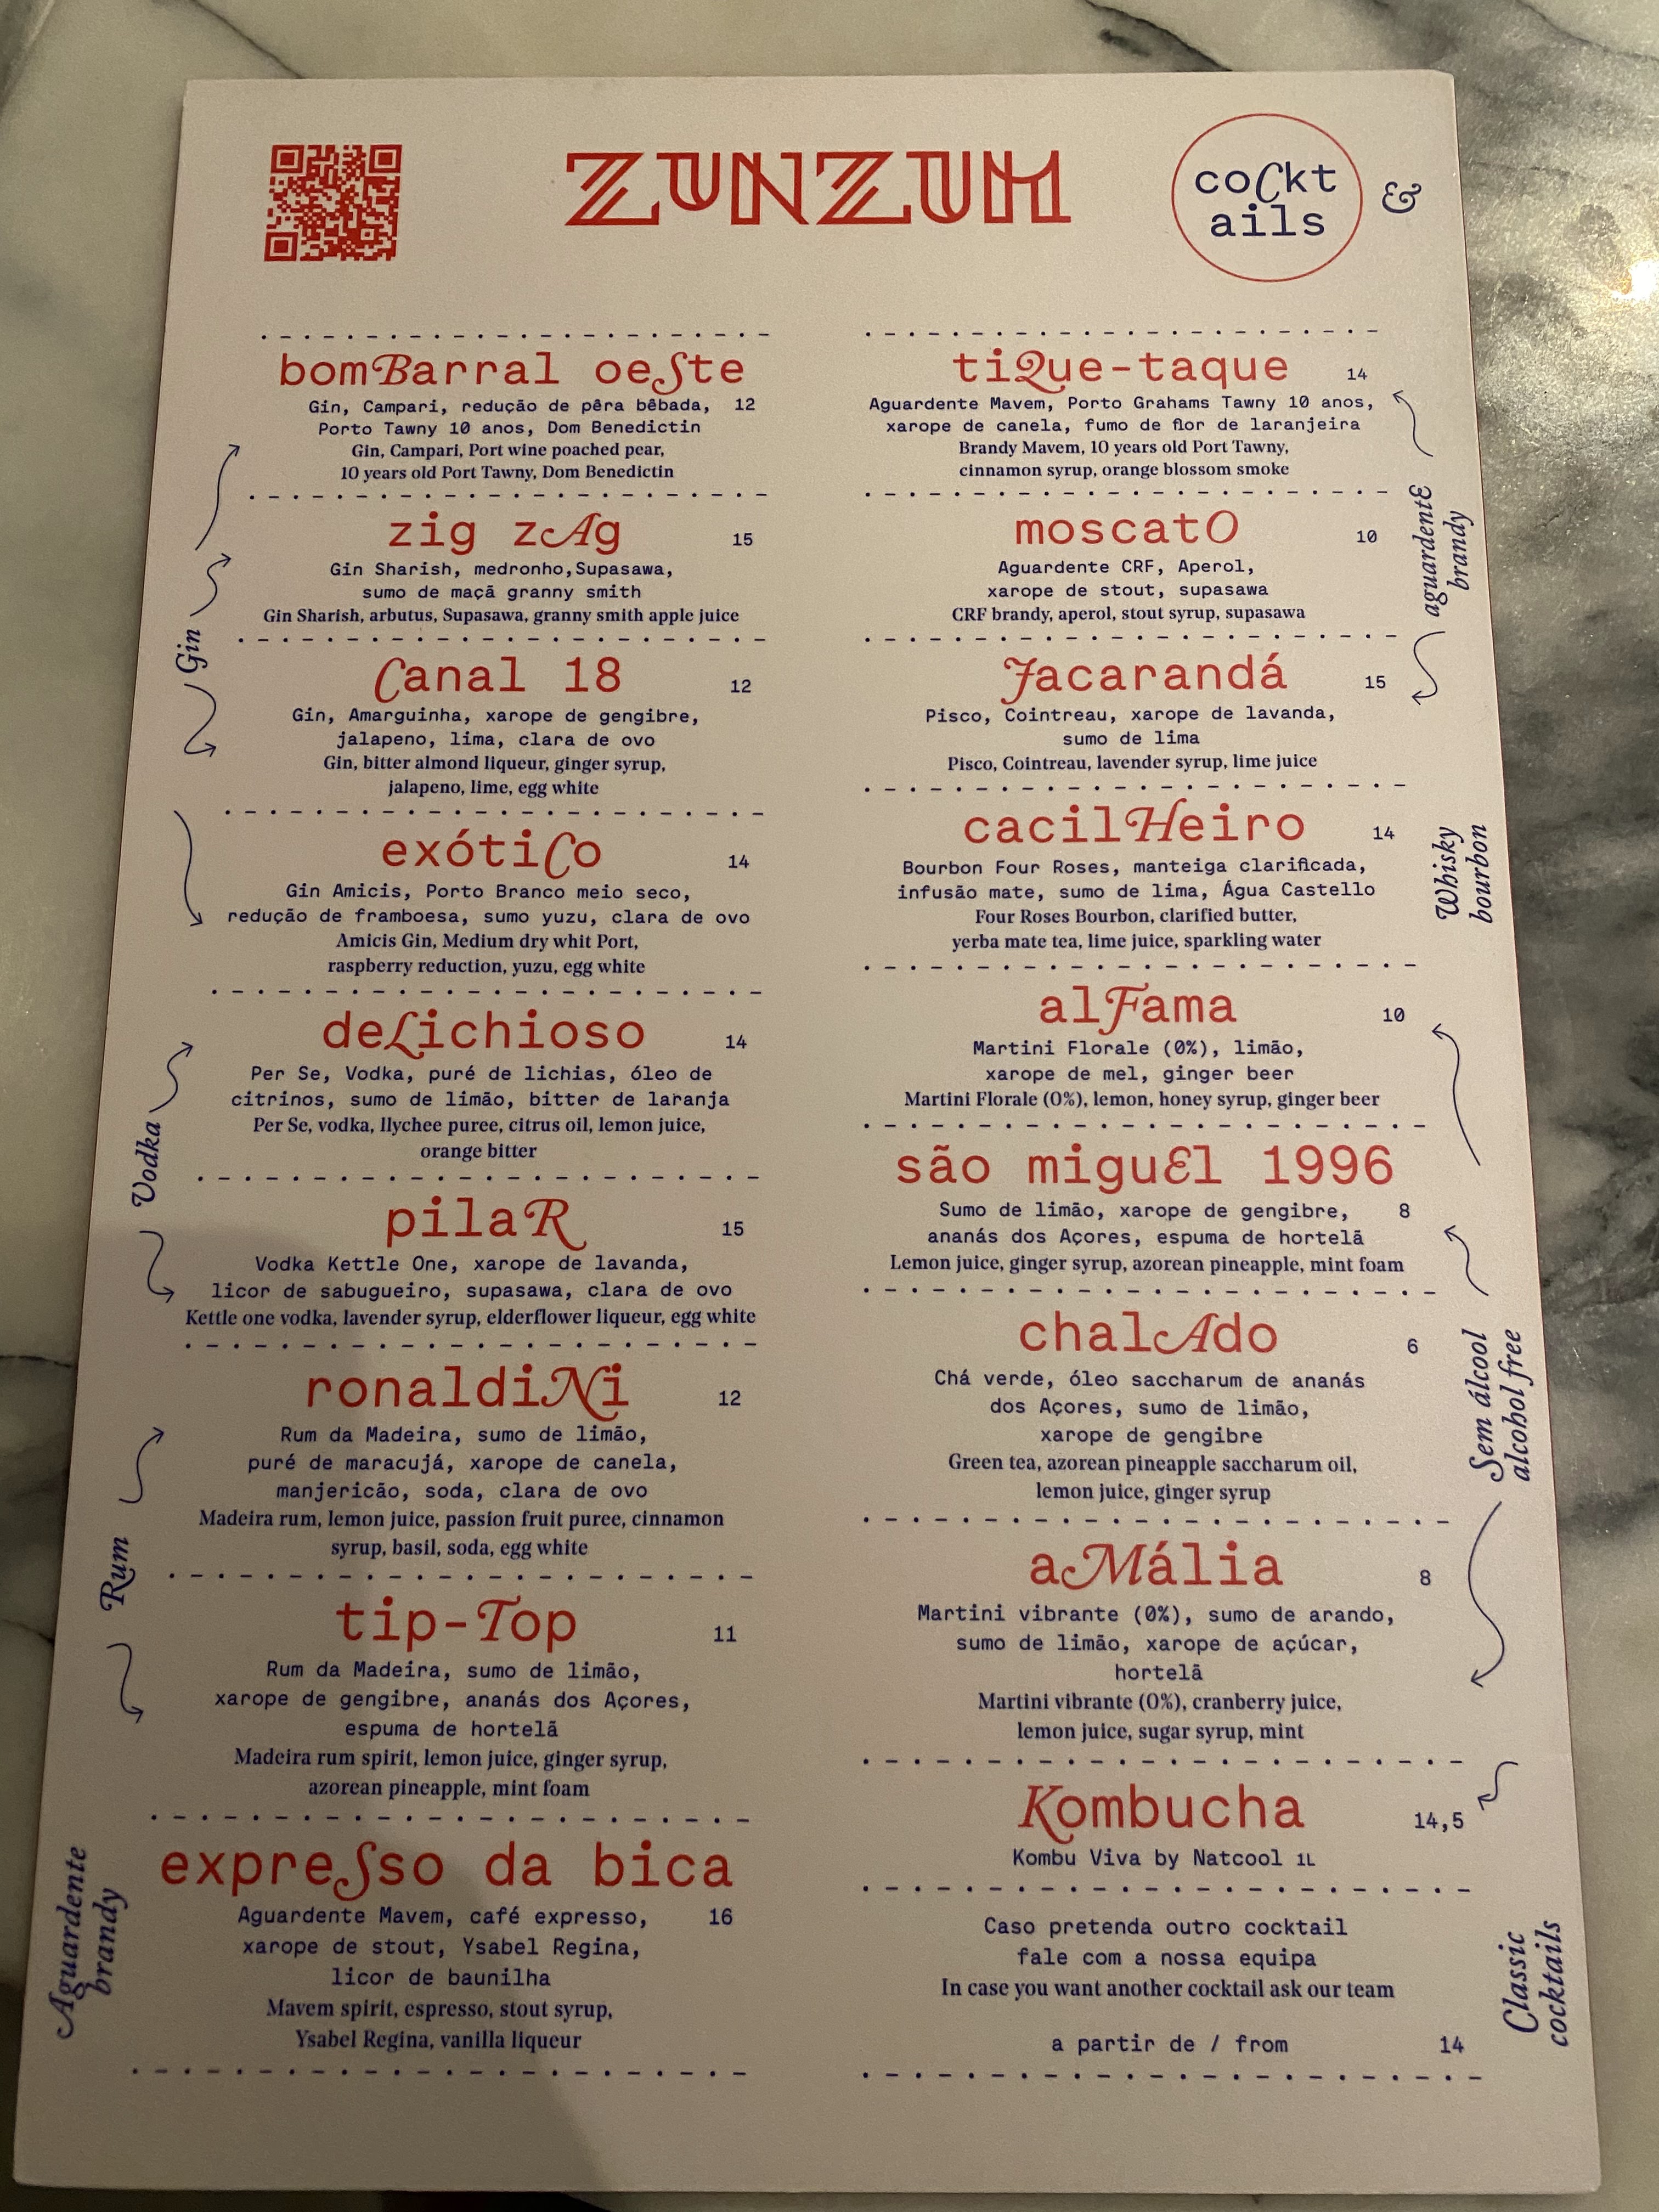 ZUNZUM
coCkt
ails
&
bomBarral oeSte
Gin, Campari, redução de pêra bêbada, 12
Porto Tawny 10 anos, Dom Benedictin
Gin, Campari, Port wine poached pear,
10 years old Port Tawny, Dom Benedictin
Gin
zig zAg 15
Gin Sharish, medronho,Supasawa,
sumo de maçã granny smith
Gin Sharish, arbutus, Supasawa, granny smith apple juice
Canal 18 12
Gin, Amarguinha, xarope de gengibre,
jalapeno, lima, clara de ovo
Gin, bitter almond liqueur, ginger syrup,
jalapeno, lime, egg white
exótiCo 14
Gin Amicis, Porto Branco meio seco,
redução de framboesa, sumo yuzu, clara de ovo
Amicis Gin, Medium dry whit Port,
raspberry reduction, yuzu, egg white
Vodka
deLichioso 14
Per Se, Vodka, puré de lichias, óleo de
citrinos, sumo de limão, bitter de laranja
Per Se, vodka, llychee puree, citrus oil, lemon juice,
orange bitter
pilaR 15
Vodka Kettle One, xarope de lavanda,
licor de sabugueiro, supasawa, clara de ovo
Kettle one vodka, lavender syrup, elderflower liqueur, egg white
Rum
ronaldiNi 12
Rum da Madeira, sumo de limão,
puré de maracujá, xarope de canela,
manjericão, soda, clara de ovo
Madeira rum, lemon juice, passion fruit puree, cinnamon
syrup, basil, soda, egg white
tip-Top 11
Rum da Madeira, sumo de limão,
xarope de gengibre, ananás dos Açores,
espuma de hortelã
Madeira rum spirit, lemon juice, ginger syrup,
azorean pineapple, mint foam
Aguardente
brandy
expreSso da bica
Aguardente Mavem, café expresso, 16
xarope de stout, Ysabel Regina,
licor de baunilha
Mavem spirit, espresso, stout syrup,
Ysabel Regina, vanilla liqueur
tiQue-taque 14
Aguardente Mavem, Porto Grahams Tawny 10 anos,
xarope de canela, fumo de flor de laranjeira
Brandy Mavem, 10 years old Port Tawny,
cinnamon syrup, orange blossom smoke
aguardentE
brandy
moscatO 10
Aguardente CRF, Aperol,
xarope de stout, supasawa
CRF brandy, aperol, stout syrup, supasawa
Jacarandá 15
Pisco, Cointreau, xarope de lavanda,
sumo de lima
Pisco, Cointreau, lavender syrup, lime juice
Whisky
bourbon
cacilHeiro 14
Bourbon Four Roses, manteiga clarificada,
infusão mate, sumo de lima, Água Castello
Four Roses Bourbon, clarified butter,
yerba mate tea, lime juice, sparkling water
alFama 10
Martini Florale (0%), limão,
xarope de mel, ginger beer
Martini Florale (0%), lemon, honey syrup, ginger beer
são miguEl 1996
Sumo de limão, xarope de gengibre, 8
ananás dos Açores, espuma de hortelã
Lemon juice, ginger syrup, azorean pineapple, mint foam
Sem álcool
alcohol free
chalAdo 6
Chá verde, óleo saccharum de ananás
dos Açores, sumo de limão,
xarope de gengibre
Green tea, azorean pineapple saccharum oil,
lemon juice, ginger syrup
aMália 8
Martini vibrante (0%), sumo de arando,
sumo de limão, xarope de açúcar,
hortelã
Martini vibrante (0%), cranberry juice,
lemon juice, sugar syrup, mint
Kombucha 14,5
Kombu Viva by Natcool 1L
Classic
cocktails
Caso pretenda outro cocktail
fale com a nossa equipa
In case you want another cocktail ask our team
a partir de / from 14